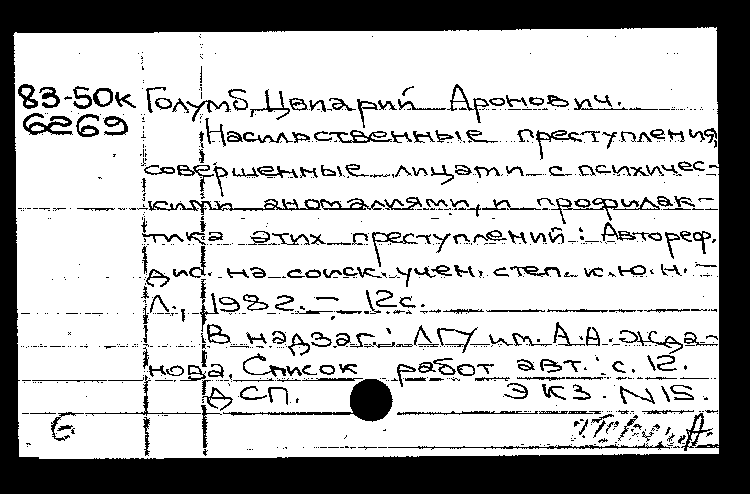 83-50к Голумб, Цвиарий Аронович.
6269 Насильственные преступления,
совершенные лицами с психичес-
кими аномалиями, и профилак-
тика этих преступлений: Автореф.
дис. на соиск. учен. степ. к.ю.н. –
Л., 1982. – 12с.
В надзаг.: ЛГУ им. А.А. Жда-
нова. Список работ авт.: с. 12.
ДСП. Экз. N15.
6